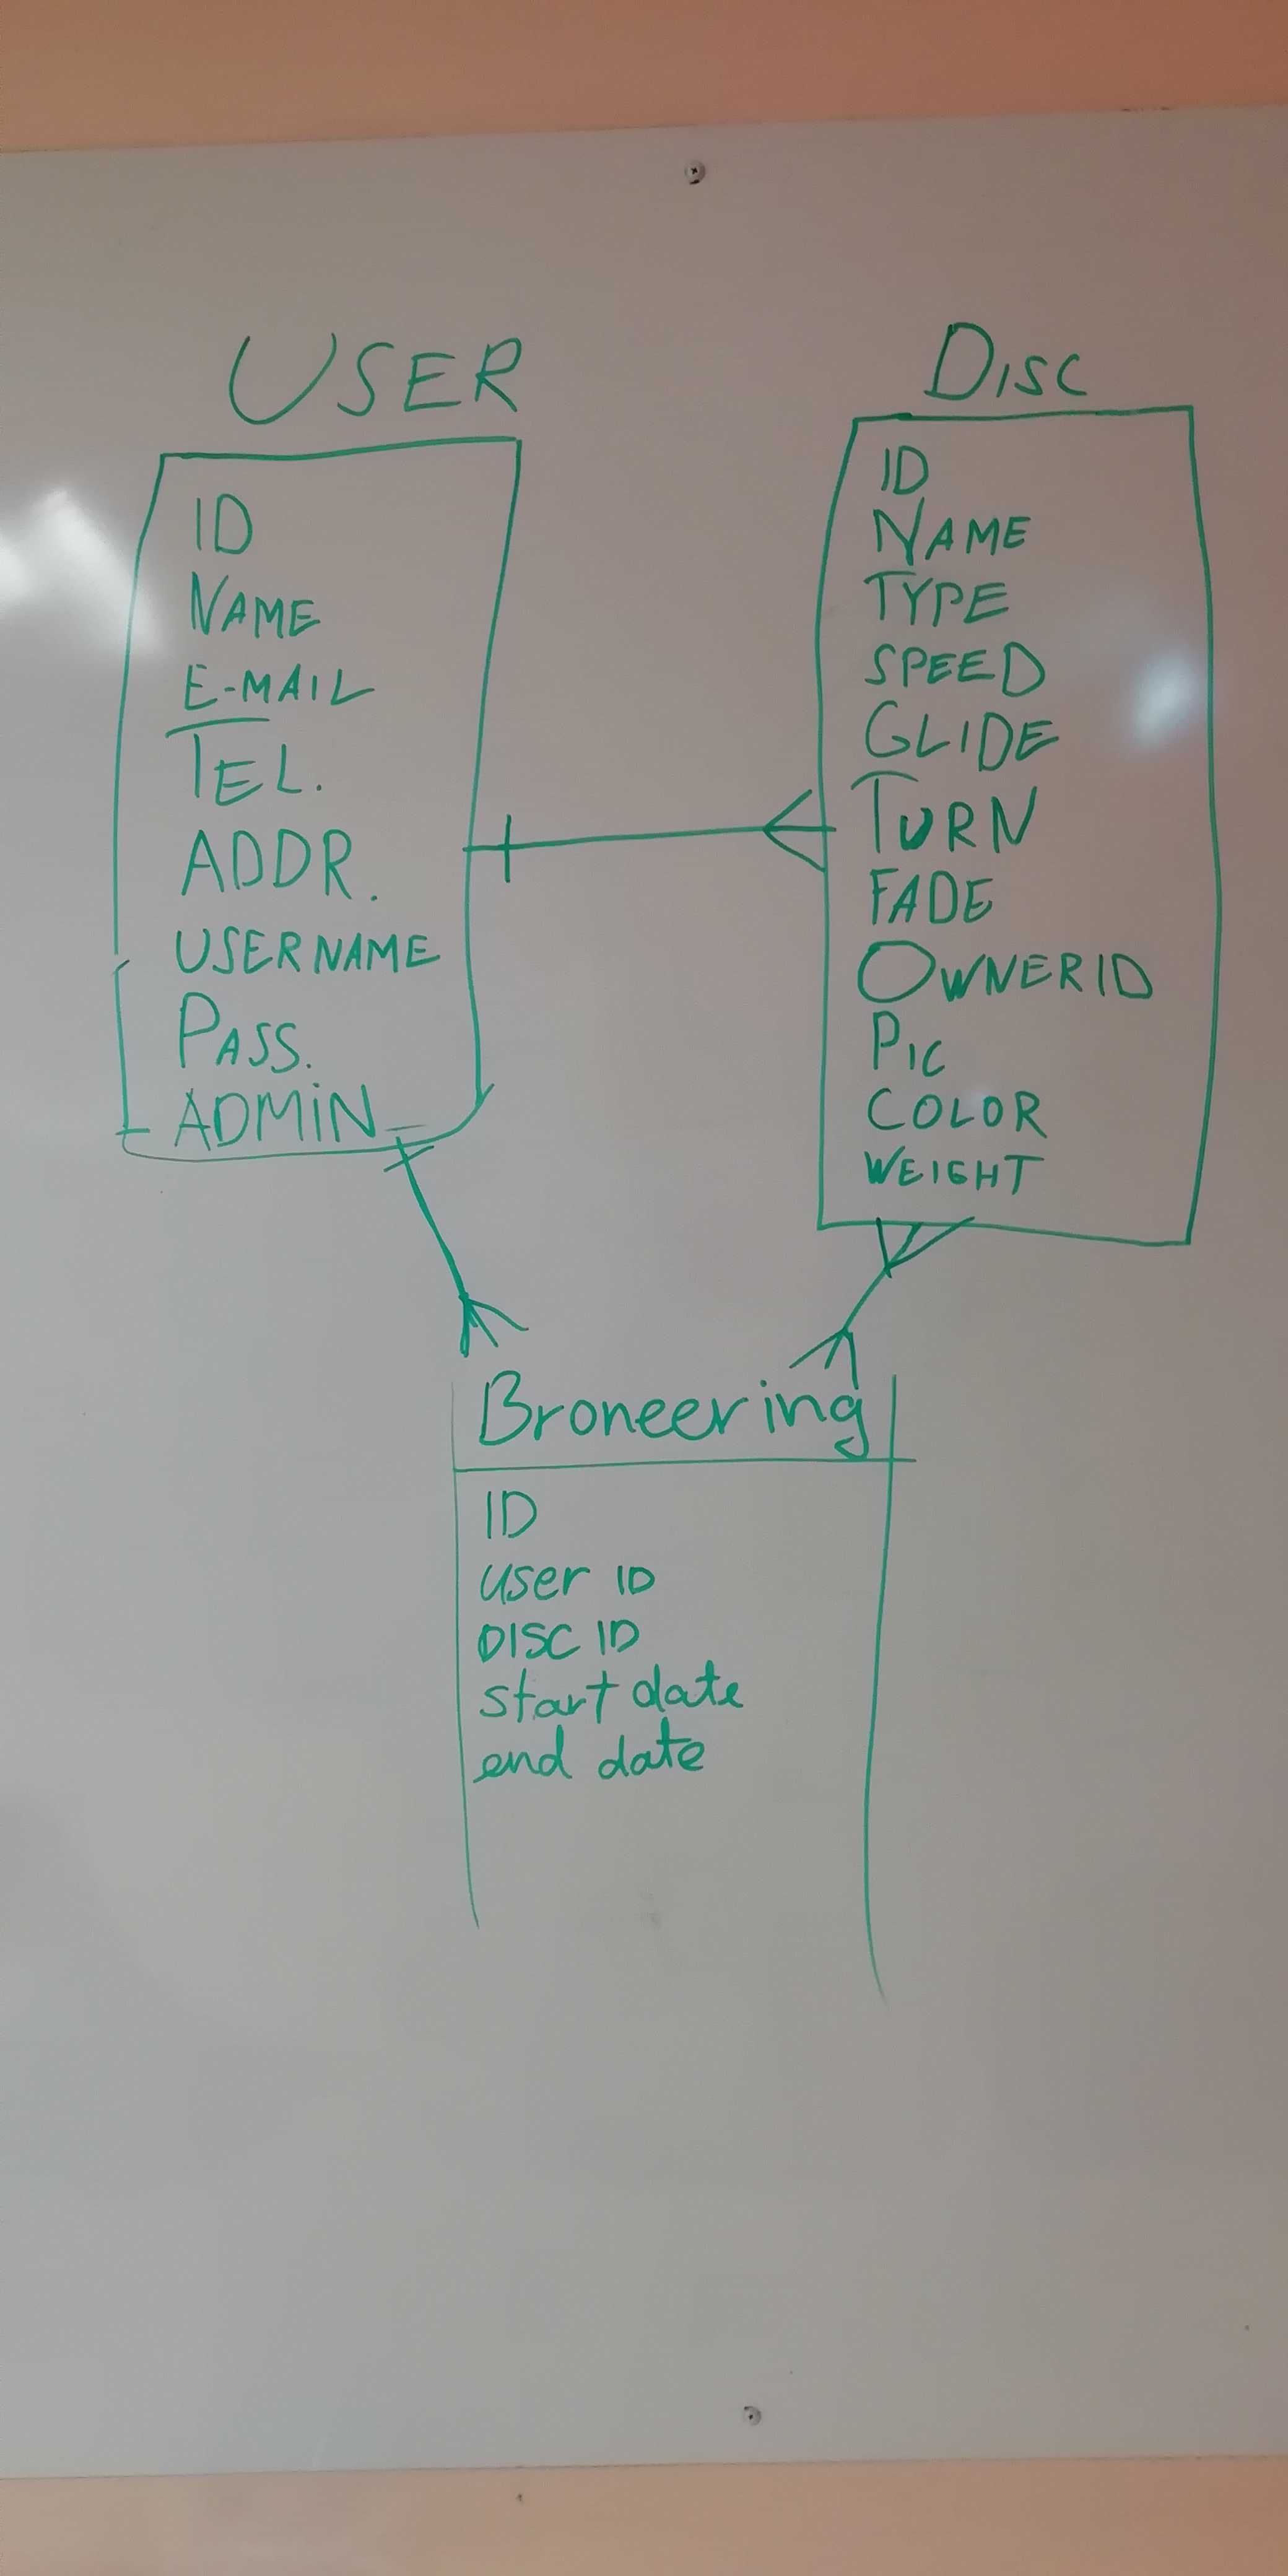 USER
ID
NAME
E-MAIL
TEL.
ADDR.
USERNAME
PASS.
ADMIN
DISC
ID
NAME
TYPE
SPEED
GLIDE
TURN
FADE
OWNERID
PIC
COLOR
WEIGHT
Broneering
ID
user ID
DISC ID
start date
end date